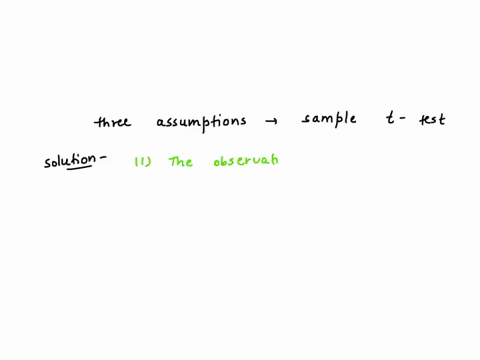 three assumptions → sample t - test
solution - (1) The observati